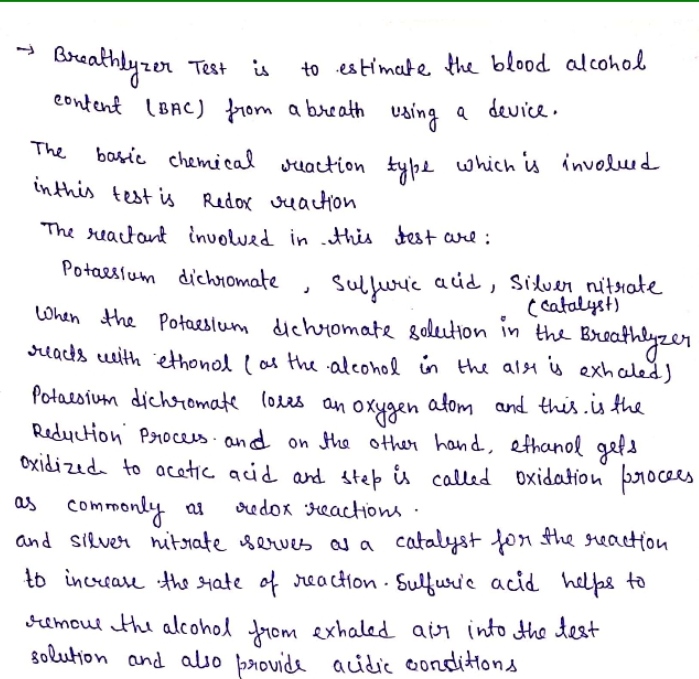 → Breathlyzer Test is to estimate the blood alcohol
content (BAC) from a breath using a device.
The basic chemical reaction type which is involued
in this test is Redox reaction
The reactant involved in this test are :
Potaessium dichromate , Sulfuric acid, Silver nitrate
(catalyst)
When the Potaessium dichromate solution in the Breathlyzer
reacts with ethonol ( as the alcohol in the air is exhaled)
Potaessium dichromate loses an oxygen atom and this is the
Reduction Process and on the other hand, ethanol gets
oxidized to acetic acid and step is called oxidation process
as commonly as redox reactions .
and silver nitrate serves as a catalyst for the reaction
to increase the rate of reaction. Sulfuric acid helps to
remove the alcohol from exhaled air into the test
solution and also provide acidic conditions